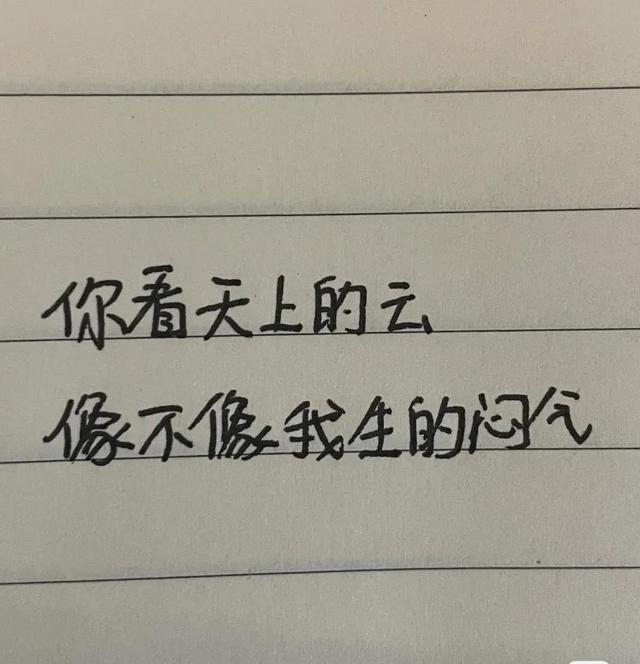 你看天上的云
像不像我生的闷气